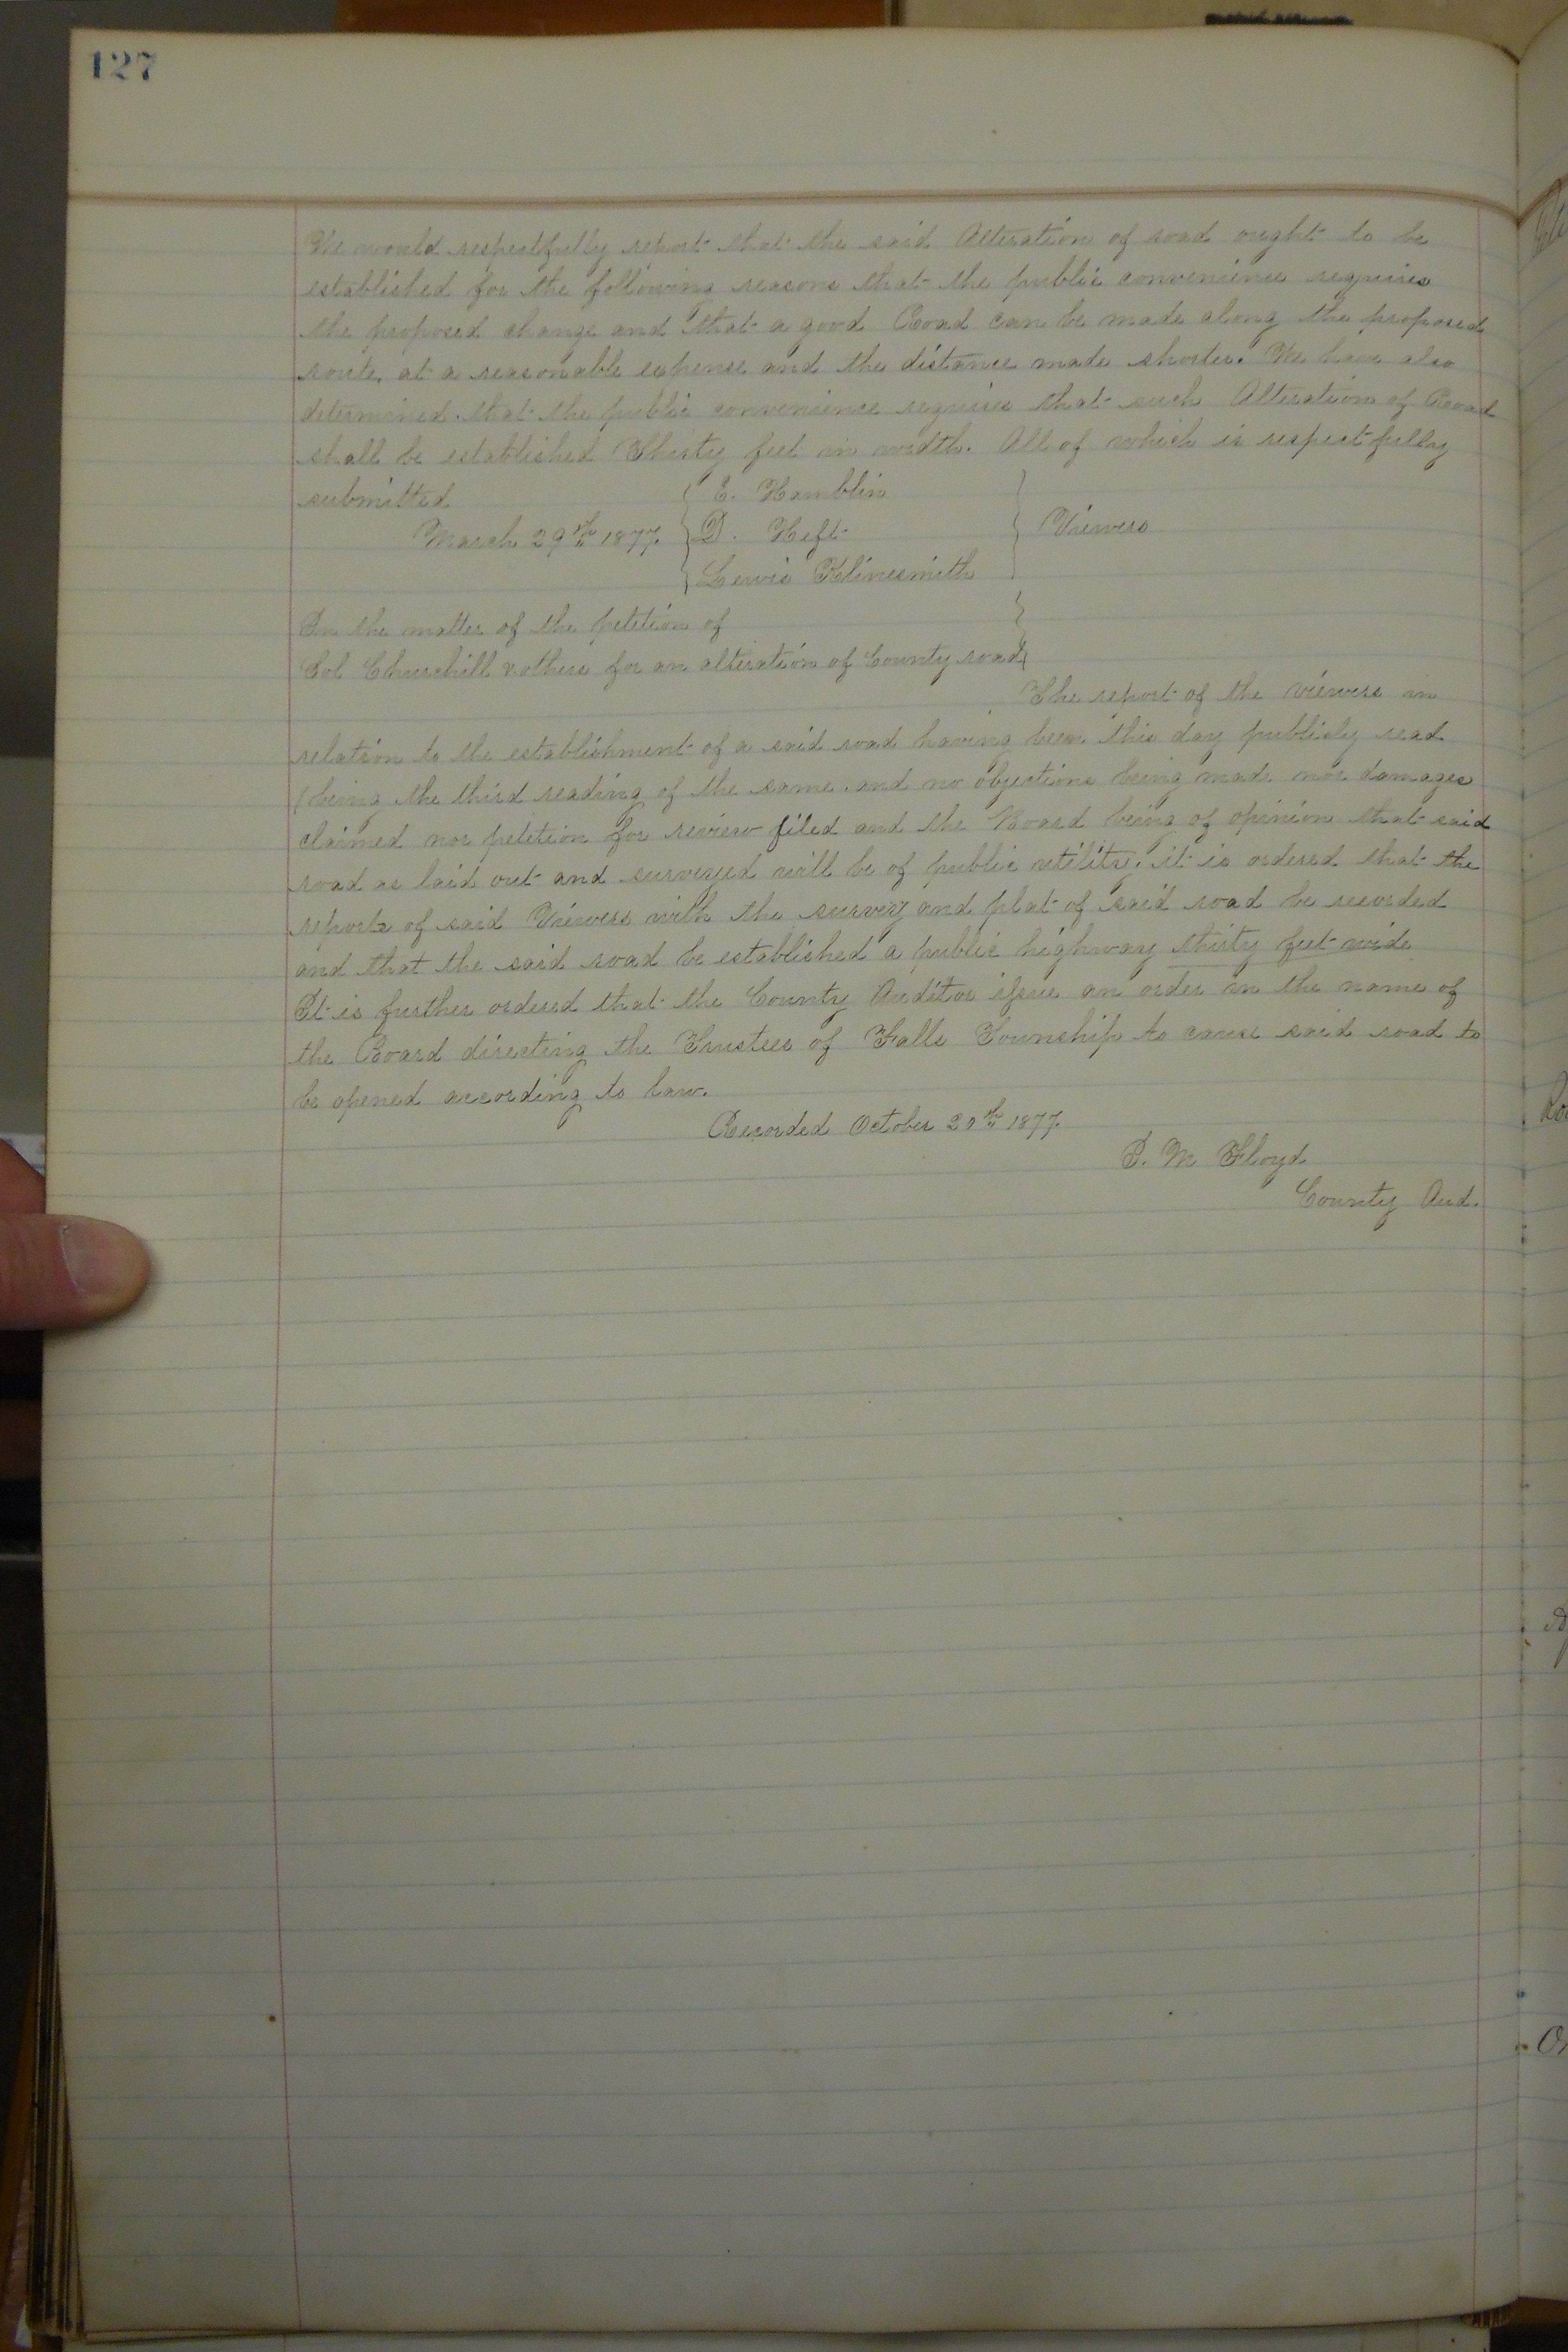 127
We would respectfully report that the said Alteration of road ought to be
established for the following reasons that the public convenience requires
the proposed change and that a good Road can be made along the proposed
route, at a reasonable expense and the distance made shorter. We have also
determined that the public convenience requires that such Alteration of Road
shall be established Thirty feet in width. All of which is respectfully
submitted
E. Hamblin
March 29th 1877 D. Heft Viewers
Lewis Klinesmith
In the matter of the petition of
Sol Churchill & others for an alteration of County road
The report of the viewers in
relation to the establishment of a said road having been this day publicly read
(being the third reading of the same and no objections being made nor damages
claimed nor petition for review filed and the Board being of opinion that said
road as laid out and surveyed will be of public utility, it is ordered that the
reports of said Viewers with the survey and plat of said road be recorded
and that the said road be established a public highway thirty feet wide
It is further ordered that the County Auditor issue an order in the name of
the Board directing the Trustees of Falls Township to cause said road to
be opened according to law.
Recorded October 20th 1877
P. M Floyd
County Aud.